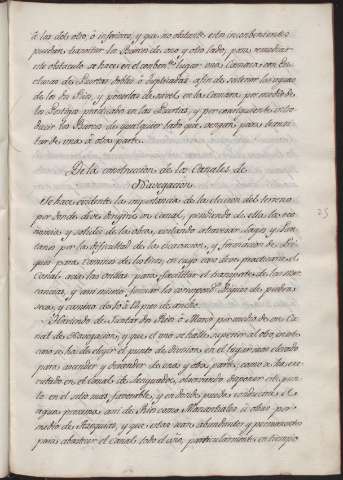 à las del otro, ò inferiores, y que no obstante estos inconbenientes
puedan transitar los Barcos de uno y otro lado; para remediar
este obstaculo se hace en el conben.te lugar una Camara con Es-
clusas de Puertas dobles ò duplicadas afin de sostener las aguas
de los dos Rios, y ponerlas de nivel en la Camara por medio de
los Postigos practicados en las Puertas, y por consiguiente intro-
ducir los Barcos de qualquier lado que vengan, para transi-
tar de una à otra parte.
De la construccion de los Canales de
Navegacion.
Se hace evidente la importancia de la eleccion del terreno
por donde deve dirigirse un Canal, pendiendo de ella la eco-
nomia, y solidez de la obra, evitando atravesar Lagos y Pan-
tanos por la dificultad de las excavaciones, y formacion de Di-
ques para Caminos de los tiros, en cuyo caso deve practicarse el
Canal acia las Orillas para facilitar el transporte de las mer-
cancias, y asi mismo formar los correspond.tes Diques de piedra
seca, y camino de 10 à 12 pies de ancho.
Haviendo de juntar dos Rios ò Mares por medio de un Ca-
nal de Navegacion, y que el uno se halle superior al otro, en este
caso se ha de elegir el punto de division en el lugar mas elevado
para ascender y descender de una y otra parte, como se ha exe-
cutado en el Canal de Lenguadoc, observando disponer este pun-
to en el sitio mas favorable, y en donde pueda conducirse el
agua proxima, asi de Rios como Manantiales ù otras por
medio de Azequias, y que estas sean abundantes y permanentes
para abastecer el Canal todo el año, particularmente en tiempo